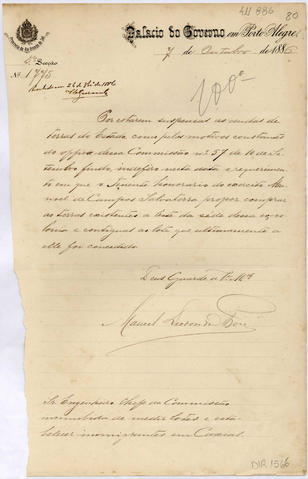 411 886 80
Palacio do Governo em Porto Alegre,
7 de Outubro de 1886
2ª Secção
Nº 1775
100º
Por estarem suspensas as vendas de
terras do Estado como pelos motivos constantes
do officio dessa Commissão nº 57 de 10 de Se-
tembro findo, indefiro nesta data o requerimen-
to em que o Tenente honorario do exercito Ma-
noel de Campos Salvaterra propoz comprar
as terras existentes a da séde dessa ex-co-
lonia e contiguas ao lote que ultimamente a
elle foi concedido.
Deus Guarde a Vmcê
Manuel
Sr. Engenheiro Chefe da Commissão
incumbida de medir lotes e esta-
belecer immigrantes em Caxias.
DIR 1566